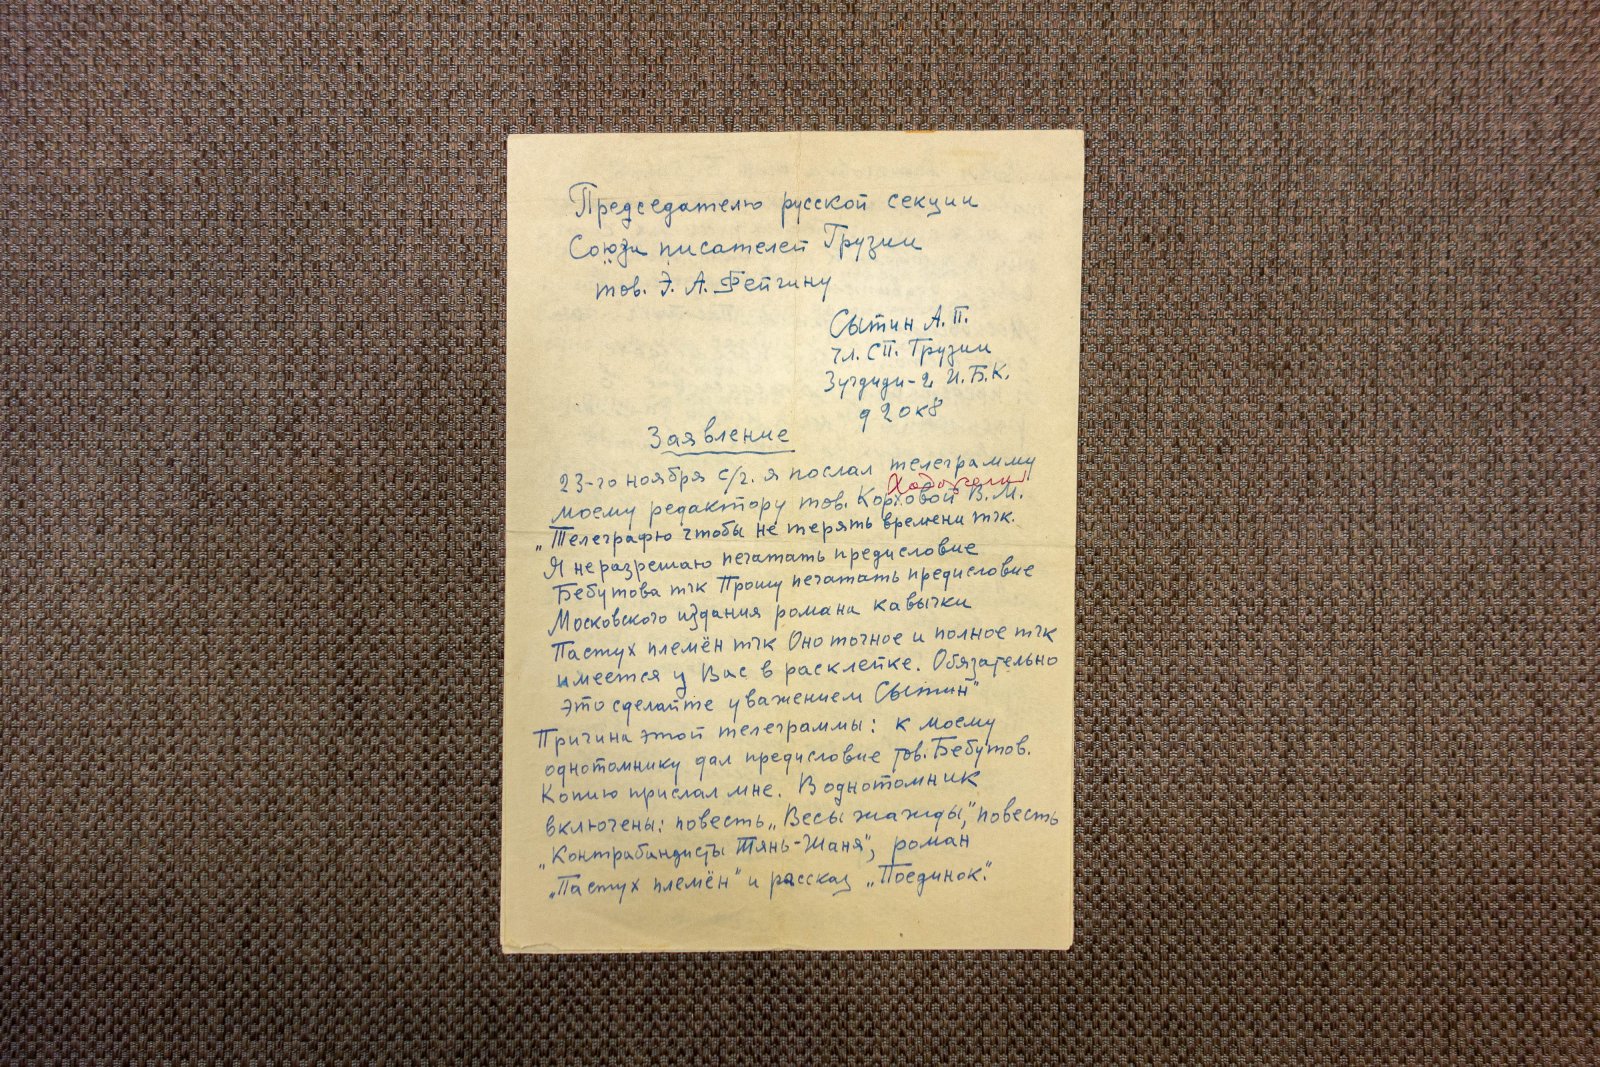 Председателю русской секции
Союза писателей Грузии
тов. Э. А. Фейгину
Сытин А. П.
чл. СП. Грузии
Зугдиди-2 И.Б.К.
д 20 к 8
Заявление
23-го ноября с/г. я послал телеграмму
моему редактору тов. Корховой В. М.
„Телеграфю чтобы не терять времени тчк.
Я не разрешаю печатать предисловие
Бебутова тчк Прошу печатать предисловие
Московского издания романа кавычки
Пастух племён тчк Оно точное и полное тчк
имеется у Вас в расклейке. Обязательно
это сделайте уважением Сытин"
Причина этой телеграммы: к моему
однотомнику дал предисловие тов. Бебутов.
Копию прислал мне. В однотомник
включены: повесть „Весы жажды", повесть
„Контрабандисты Тянь-Шаня", роман
„Пастух племён" и рассказ „Поединок".